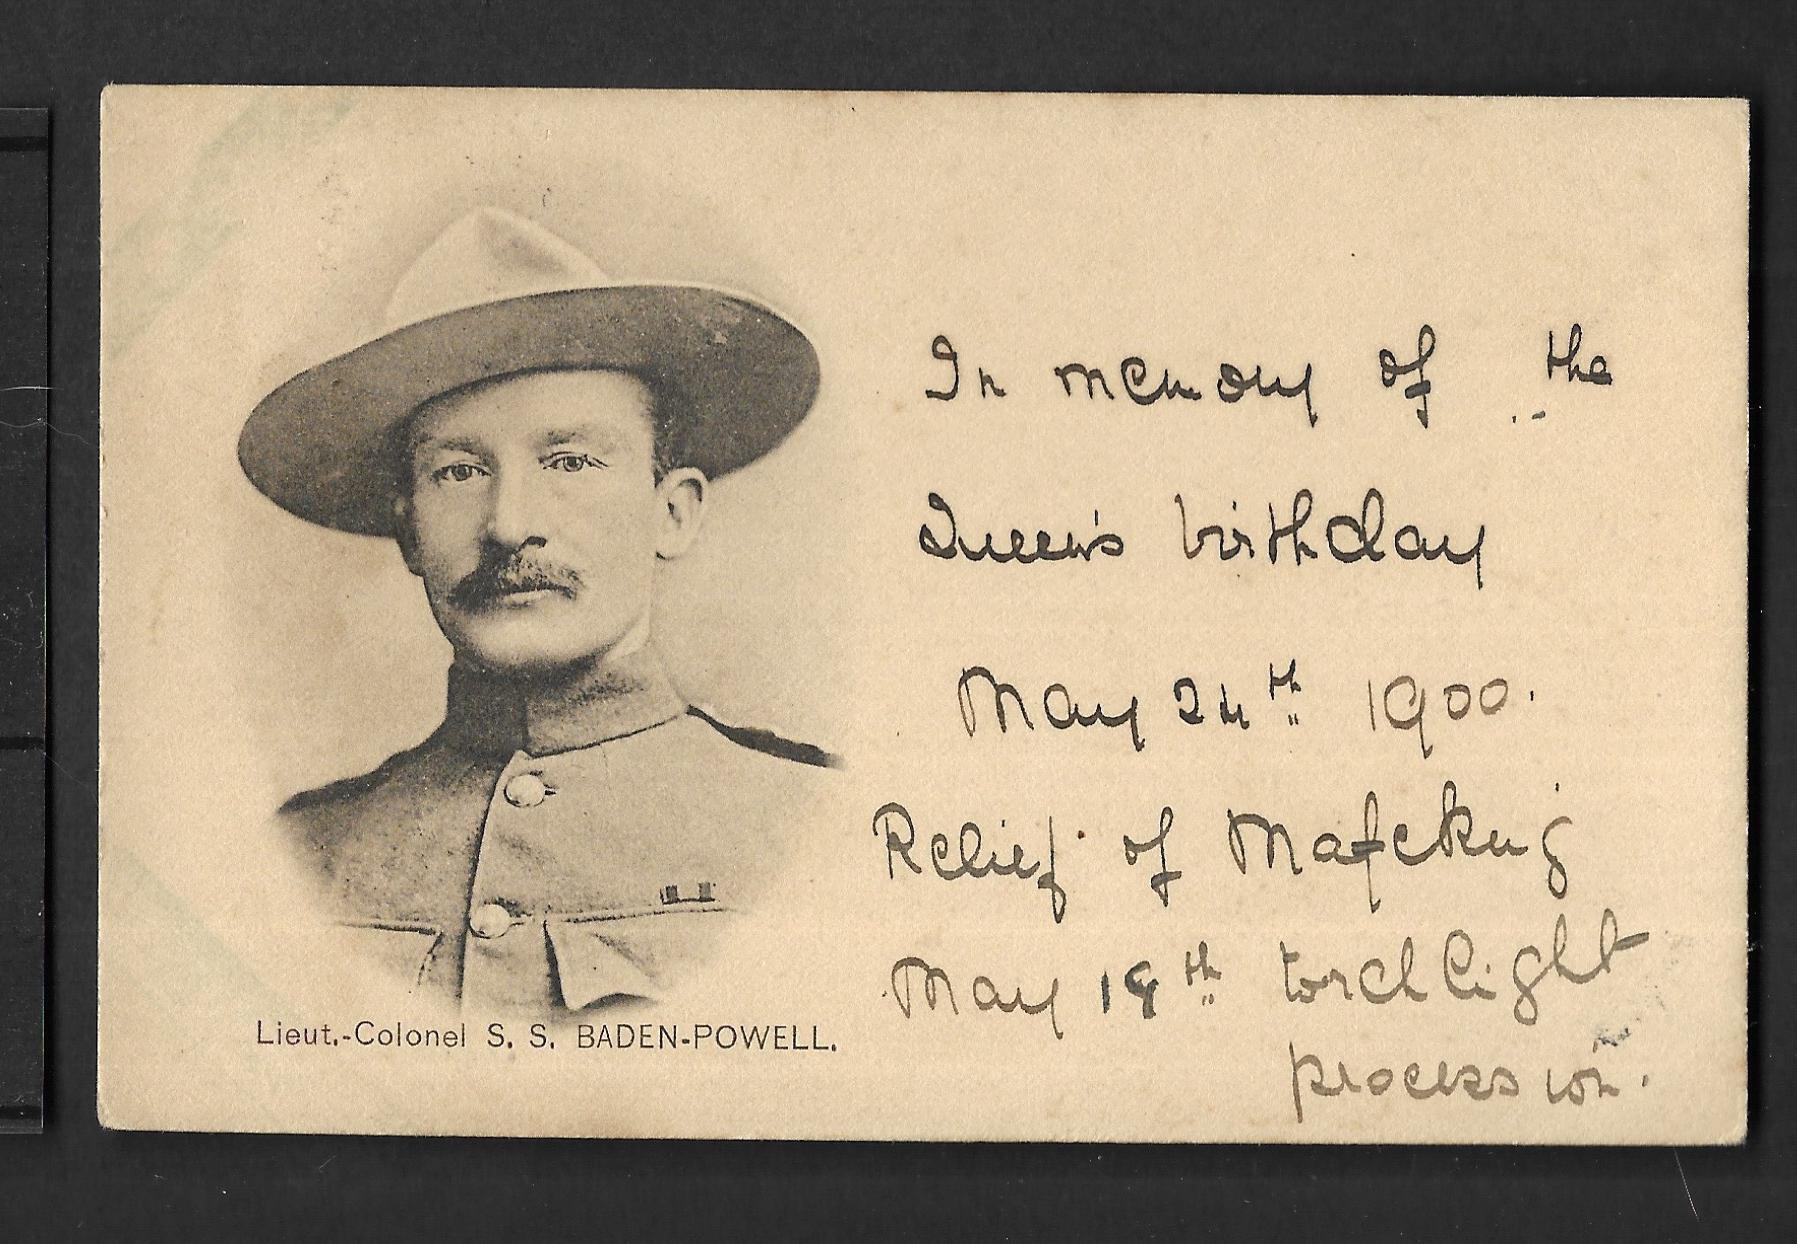 In memory of the
Queen's birthday
May 24th 1900.
Relief of Mafeking
May 18th torchlight
procession.
Lieut.-Colonel S. S. BADEN-POWELL.